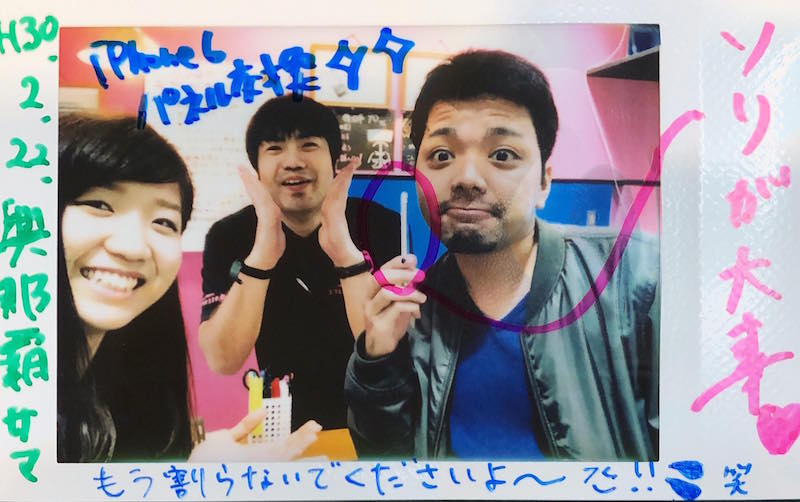 iPhone6
パネル交換
H30.2.22.與那覇サマ
ソリが大事
もう割らないでくださいよ〜!!笑